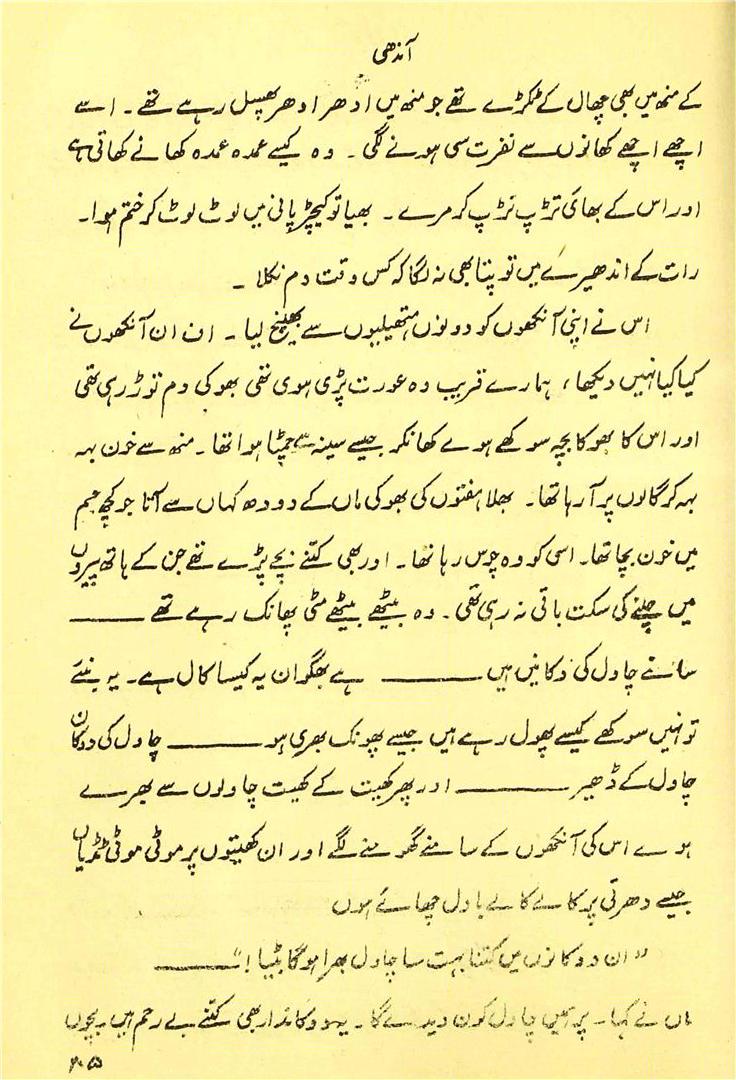 آندھی
کے منھ میں بھی چھال کے ٹکڑے تھے جو منھ میں ادھر ادھر پھسل رہے تھے۔ اسے
اچھے اچھے کھانوں سے نفرت سی ہونے لگی۔ وہ کیسے عمدہ عمدہ کھانے کھاتی ہے
اور اس کے بھائی تڑپ تڑپ کر مرے۔ بھیا تو کیچڑ پانی میں لوٹ لوٹ کر ختم ہوا۔
رات کے اندھیرے میں تو پتا بھی نہ لگا کہ کس وقت دم نکلا۔
اس نے اپنی آنکھوں کو دونوں ہتھیلیوں سے بھینچ لیا۔ ان ان آنکھوں نے
کیا کیا نہیں دیکھا، ہمارے قریب وہ عورت پڑی ہوی تھی بھوکی دم توڑ رہی تھی
اور اس کا بھوکا بچہ سوکھے ہوے کھانکر جیسے سینہ سے چمٹا ہوا تھا۔ منھ سے خون بہہ
بہہ کر گالوں پر آ رہا تھا۔ بھلا ہفتوں کی بھوکی ماں کے دودھ کہاں سے آتا جو کچھ جسم
میں خون بچا تھا۔ اسی کو وہ چوس رہا تھا۔ اور بھی کتنے بچے پڑے تھے جن کے ہاتھ پیروں
میں چلنے کی سکت باقی نہ رہی تھی۔ وہ بیٹھے بیٹھے مٹی پھانک رہے تھے ———
سامنے چاول کی دکانیں ہیں ——— ہے بھگوان یہ کیسا کال ہے۔ یہ بنئے
تو نہیں سوکھے کیسے پھول رہے ہیں جیسے پھونک بھری ہو ——— چاول کی دوکان
چاول کے ڈھیر ——— اور پھر کھیت کے کھیت چاولوں سے بھرے
ہوے اس کی آنکھوں کے سامنے گھومنے لگے اور ان کھیتوں پر موٹی موٹی ٹڈیاں
جیسے دھرتی پر کالے کالے بادل چھائے ہوں
"ان دوکانوں میں کتنا بہت سا چاول بھرا ہوگا بٹیا!" ———
ماں نے کہا۔ پر ہمیں چاول کون دیدے گا۔ یہ دوکاندار بھی کتنے بے رحم ہیں۔ بچوں